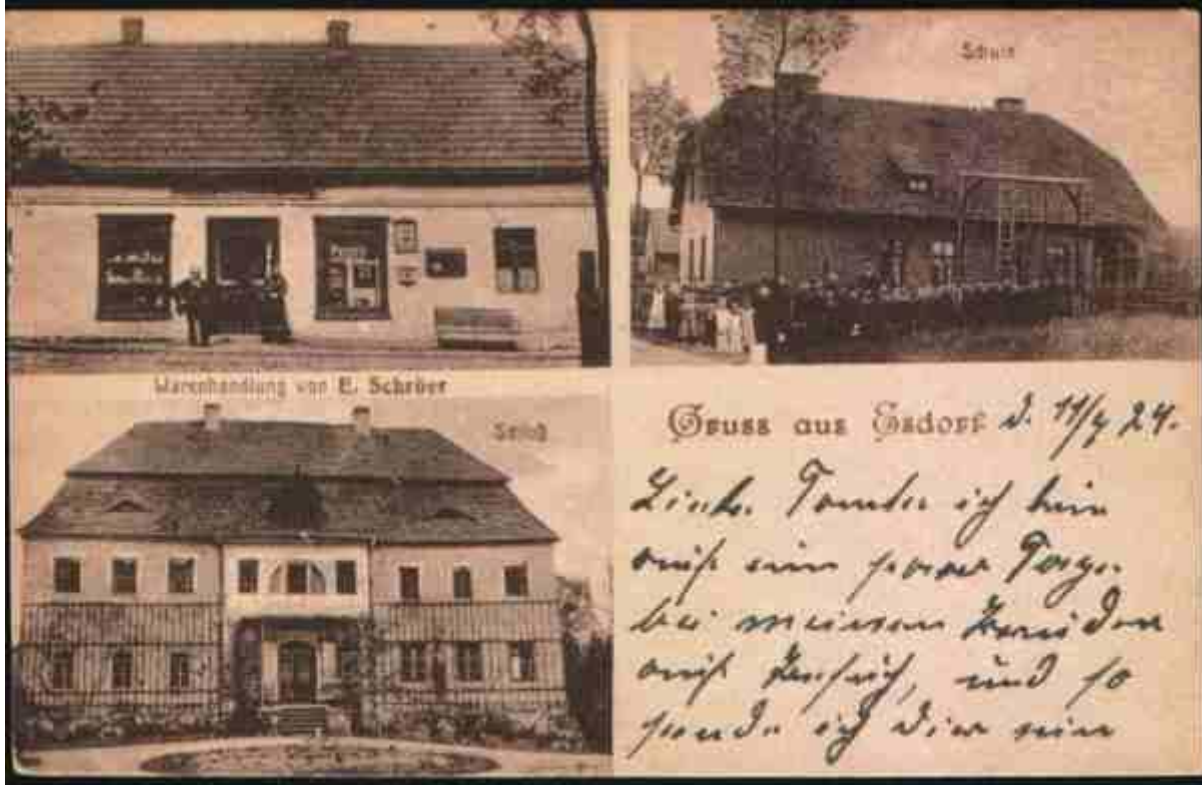 Schule
Warenhandlung von E. Schröer
Schloß
Gruss aus Esdorf d. 11/7 24.
Liebe Tante ich bin
auf ein paar Tage
bei meinen Bruder
auf Besuch, und so
sende ich dier ein